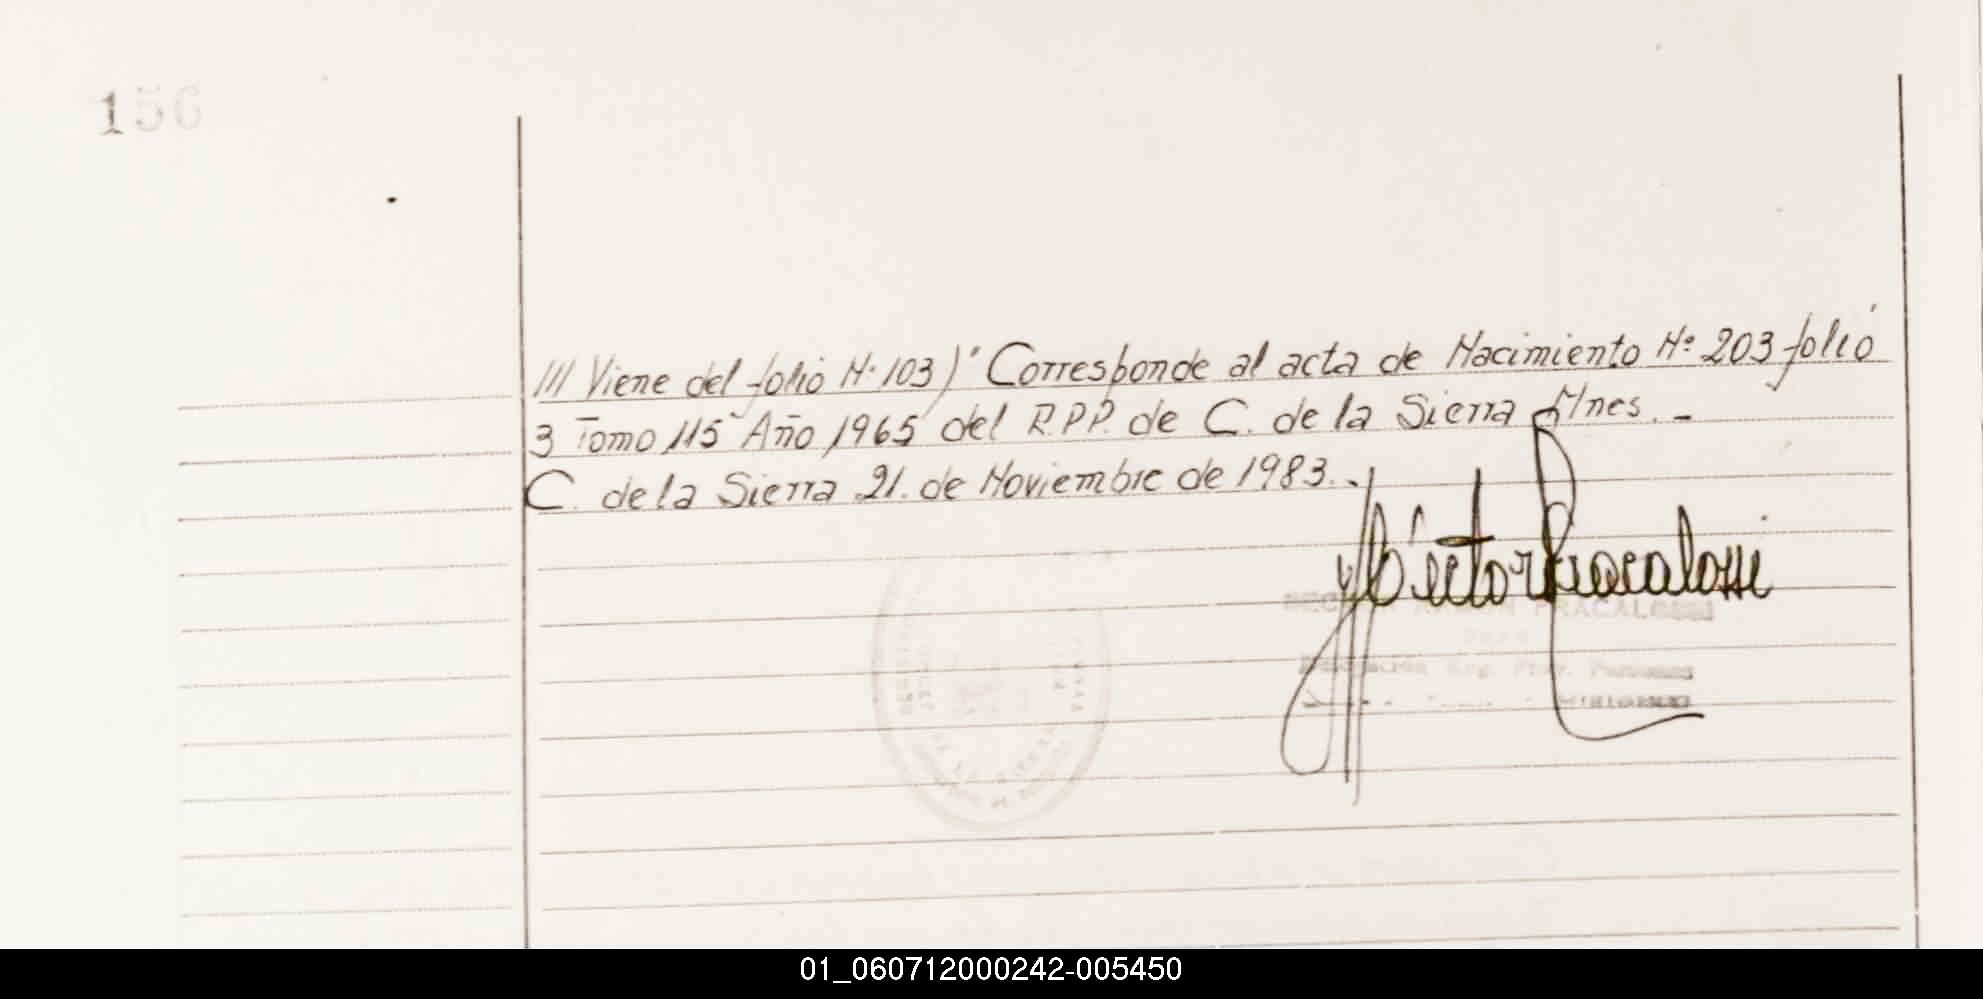 156
/// Viene del folio N· 103)" Corresponde al acta de Nacimiento Nº 203 folio
3 Tomo 115 Año 1965 del R.P.P. de C. de la Sierra Mnes. -
C. de la Sierra 21. de Noviembre de 1983. -
Héctor Fracalossi
FRACALOSSI
01_060712000242-005450